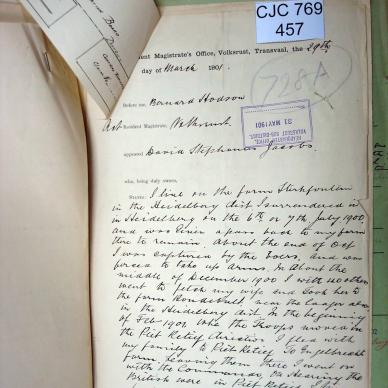 CJC 769
457
Resident Magistrate's Office, Volksrust, Transvaal, the 29th
day of March 1901.
728A
Before me, Bernard Hodson
Act Resident Magistrate, Volksrust.
31 MAY 1901
appeared David Stephanus Jacobs.
who, being duly sworn,
States: I live on the farm Sterkfontein
in the Heidelberg dist. I surrendered it
in Heidelberg on the 6th or 7th July 1900
and was given a pass back to my farm
there to remain. About the end of Oct
I was captured by the boers, and was
forced to take up arms. In About the
middle of December 1900 I with 20 others
went to fetch my wife and took her to
the farm near the Laager
in the Heidelberg dist. In the beginning
of Feb 1901 when the troops moved in
the Piet Retief direction I fled with
my family to Piet Retief to Engelbrecht
farm leaving them there I went on
with the Commando, In hearing the
British were in Piet Retief